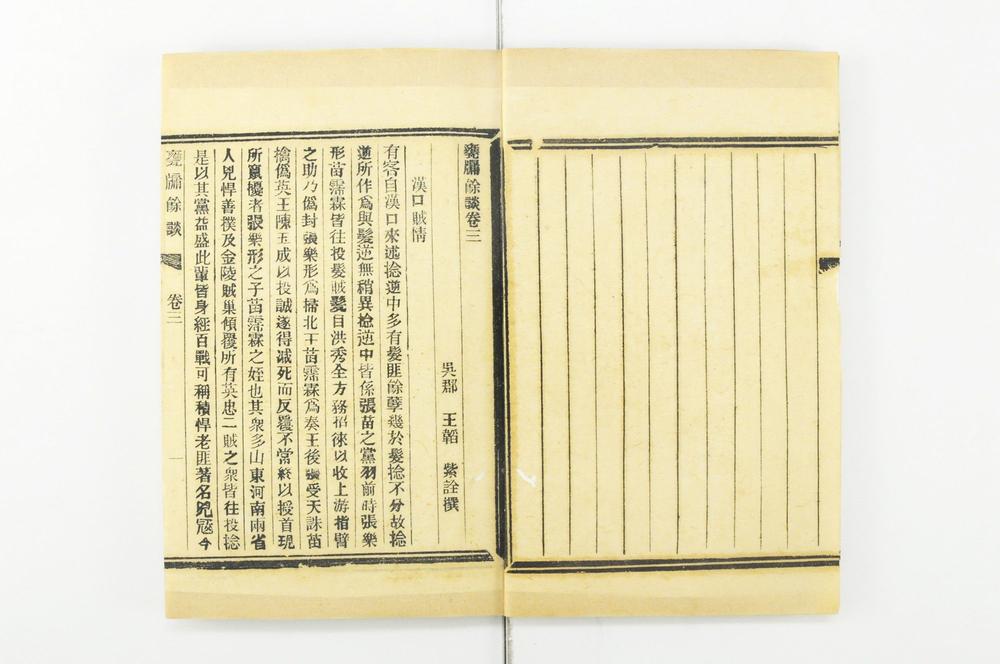 甕牖餘談卷三
吳郡　王韜　紫詮撰
漢口賊情
有客自漢口來述捻逆中多有髮匪餘孽幾於髮捻不分故捻
逆所作為與髮逆無稍異捻逆中皆係張苗之黨羽前時張樂
形苗霈霖皆往投髮賊髮目洪秀全方務招徠以收上游指臂
之助乃偽封張樂形為掃北王苗霈霖為奏王後張受天誅苗
擒偽英王陳玉成以投誠遂得減死而反覆不常終以授首現
所竄擾者張樂形之子苗霈霖之姪也其衆多山東河南兩省
人兇悍善撲及金陵賊巢傾覆所有英忠二賊之衆皆往投捻
是以其黨益盛此輩皆身經百戰可稱積悍老匪著名兇寇今
甕牖餘談　卷三　一